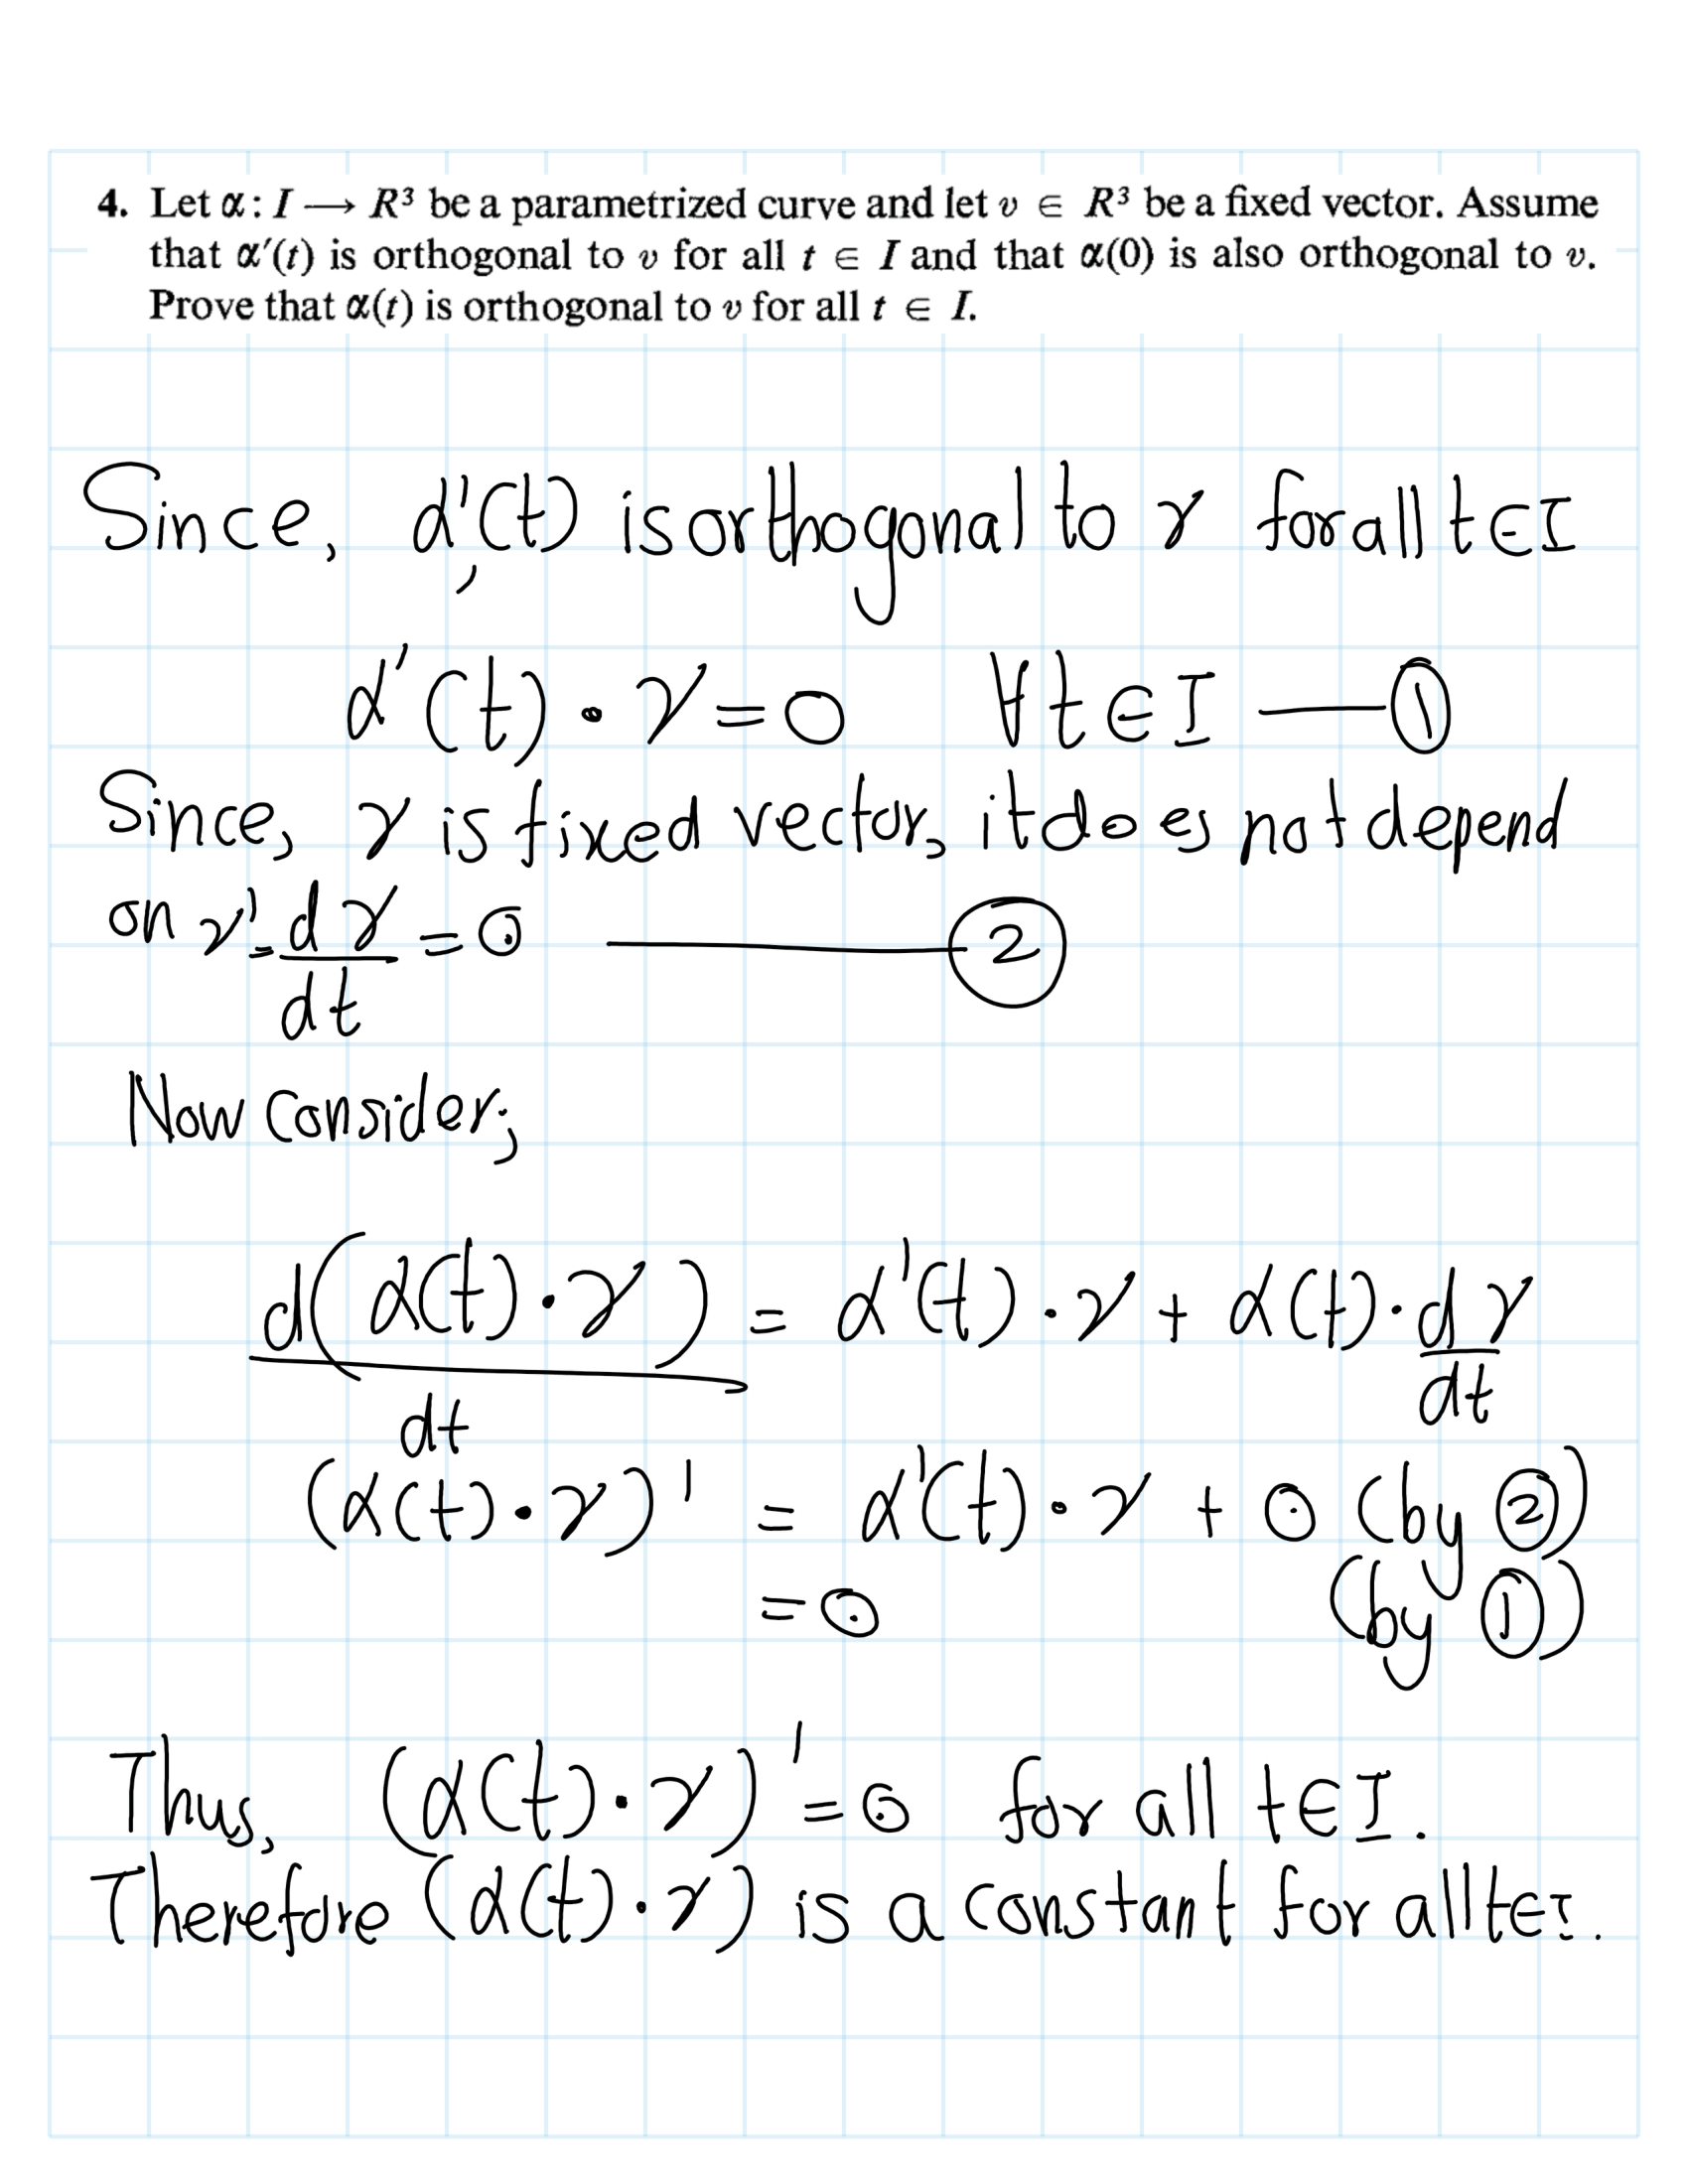 4. Let α : I → R³ be a parametrized curve and let v ∈ R³ be a fixed vector. Assume
that α′(t) is orthogonal to v for all t ∈ I and that α(0) is also orthogonal to v.
Prove that α(t) is orthogonal to v for all t ∈ I.
Since, α'(t) is orthogonal to v for all t∈I
,
α'(t) · v = 0 ∀ t ∈ I — ①
Since, v is fixed vector, it does not depend
on v' = dv/dt = 0 — ②
Now consider,
d(α(t) · v)/dt = α'(t) · v + α(t) · dv/dt
(α(t) · v)' = α'(t) · v + 0 (by ②)
= 0 (by ①)
Thus, (α(t) · v)' = 0 for all t∈I.
Therefore (α(t) · v) is a constant for all t∈I.